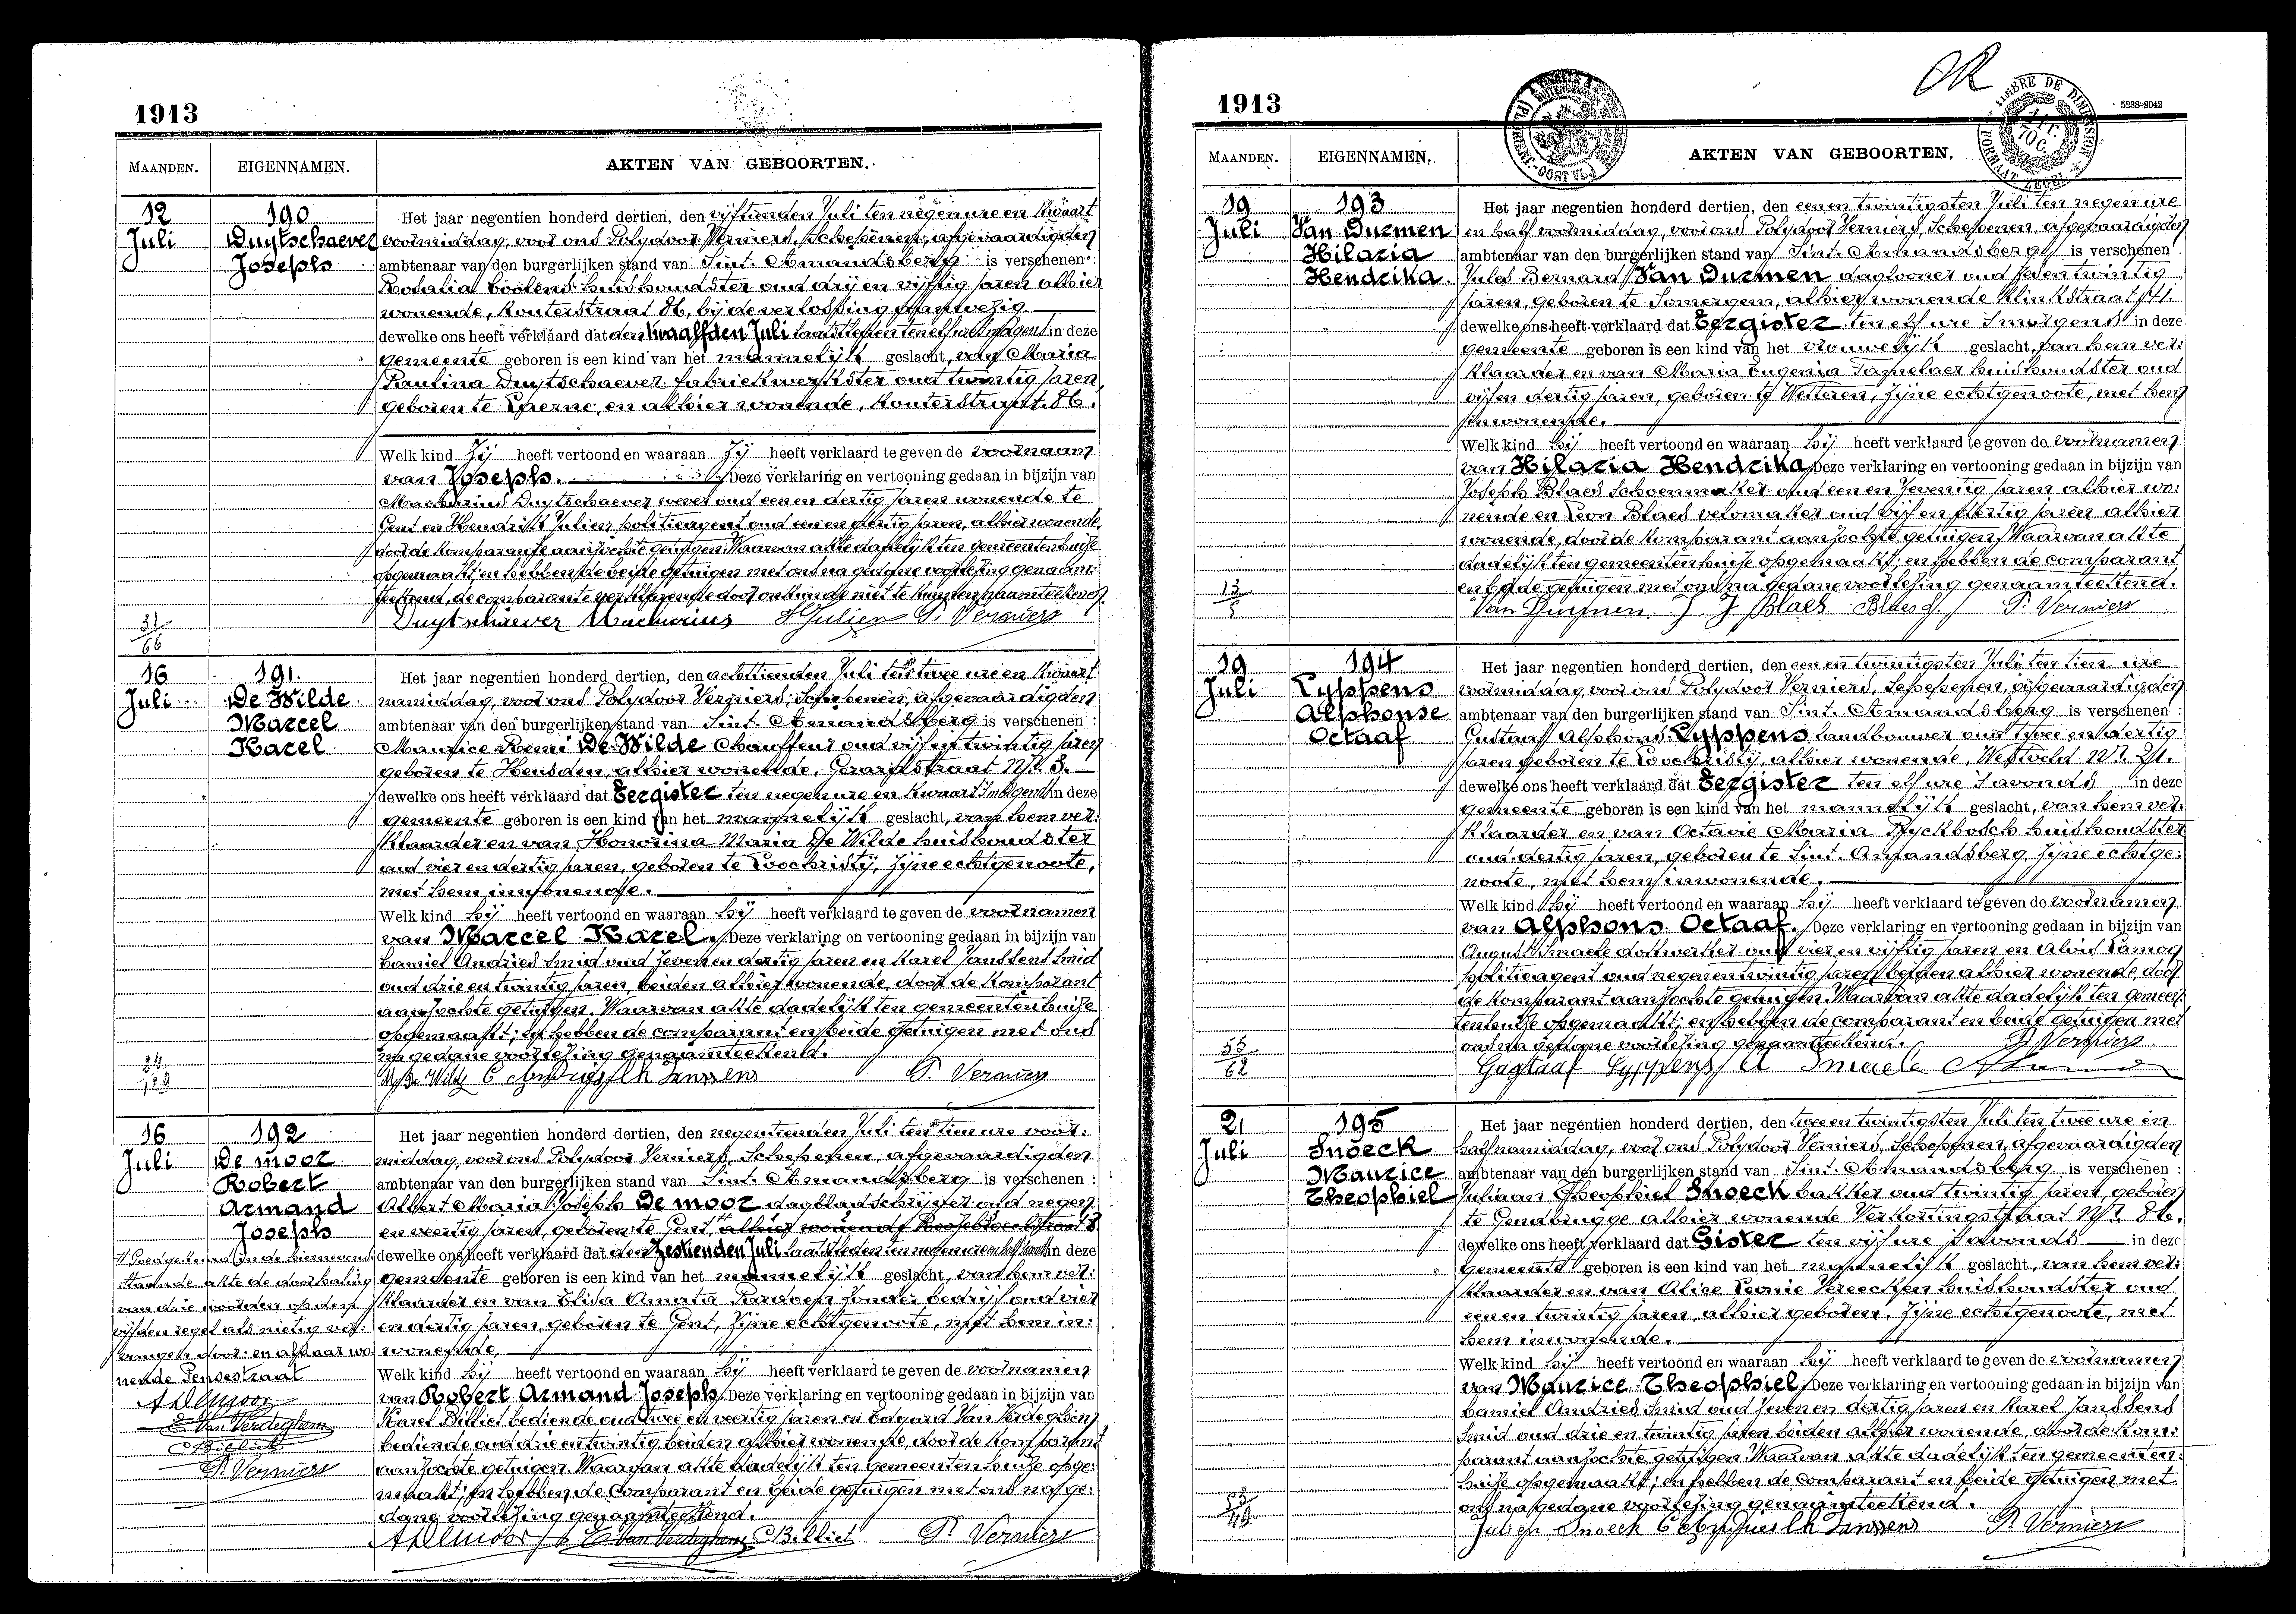 1913
MAANDEN. EIGENNAMEN. AKTEN VAN GEBOORTEN.
12 Juli
190
Duytschaever
Joseph
Het jaar negentien honderd dertien, den vijftienden Juli ten negen ure en kwaart
voormiddag, voor ons Polydoor Verniers, Schepenen, afgevaardigden
ambtenaar van den burgerlijken stand van Sint. Amandsberg is verschenen :
Rosalia huishoudster oud drij en vijftig jaren alhier
wonende, Kouterstraat 86, bij de verlossing aanwezig
dewelke ons heeft verklaard dat den twaalfden Juli laatstleden ten elf ure s'morgens in deze
gemeente geboren is een kind van het mannelijk geslacht, van Maria
Paulina Duytschaever fabriekwerkster oud twintig jaren,
geboren te en alhier wonende, Kouterstraat 86.
Welk kind Zij heeft vertoond en waaraan Zij heeft verklaard te geven de voornaam
van Joseph. Deze verklaring en vertooning gedaan in bijzijn van
Macharius Duytschaever wever oud een en dertig jaren wonende te
Gent en Hendrik Julien politieagent oud een en dertig jaren, alhier wonende,
door de komparante aanzochte getuigen. Waarvan akte dadelijk ten gemeentenhuise
opgemaakt; en hebben de beide getuigen met ons na gedane voorlezing genaam-
teekend, de comparante verklarende door onkunde niet te kunnen naamteekenen.
31
66
Duytschaever Macharius H Julien P. Verniers
16 Juli
191.
De Wilde
Marcel
Karel
Het jaar negentien honderd dertien, den achttienden Juli ten twee ure en kwaart
namiddag, voor ons Polydoor Verniers, Schepenen, afgevaardigden
ambtenaar van den burgerlijken stand van Sint. Amandsberg is verschenen :
Maurice Remi De Wilde Chauffeur oud vijf en twintig jaren
geboren te Heusden, alhier wonende, Gerardstraat Nr. 3.
dewelke ons heeft verklaard dat Eergister ten negen ure en kwaart s'morgens in deze
gemeente geboren is een kind van het mannelijk geslacht, van hem ver-
klaarder en van Honorina Maria De Wilde huishoudster
oud vier en dertig jaren, geboren te Loochristij, zijne echtgenoote,
met hem inwonende.
Welk kind hij heeft vertoond en waaraan hij heeft verklaard te geven de voornamen
van Marcel Karel. Deze verklaring en vertooning gedaan in bijzijn van
Camiel Andries Smid oud zeven en dertig jaren en Karel Janssens Smid
oud drie en twintig jaren, beiden alhier wonende, door de komparant
aanzochte getuigen. Waarvan akte dadelijk ten gemeentenhuise
opgemaakt; en hebben de comparant en beide getuigen met ons
na gedane voorlezing genaamteekend.
M. De Wilde C Andries Ch Janssens P. Verniers
16 Juli
192
De moor
Robert
Armand
Joseph
Het jaar negentien honderd dertien, den negentienden Juli ten tien ure voor-
middag, voor ons Polydoor Verniers, Schepenen, afgevaardigden
ambtenaar van den burgerlijken stand van Sint. Amandsberg is verschenen :
Albert Maria Joseph De moor dagbladschrijver oud negen
en veertig jaren, geboren te Gent, alhier wonende
dewelke ons heeft verklaard dat den Zestienden Juli laatstleden ten negen ure en half in deze
gemeente geboren is een kind van het mannelijk geslacht, van hem ver-
klaarder en van Elisa Amata zonder bedrijf oud vier
en dertig jaren, geboren te Gent, zijne echtgenoote, met hem in-
wonende.
Goedgekeurd in de hiernevens-
staande akte de doorhaling
van drie woorden op den
vijfden regel als nietig ver-
vangen door: en aldaar wo-
nende Pensestraat
A Demoor
E. Van Verdeghem
C Billiet
P. Verniers
Welk kind hij heeft vertoond en waaraan hij heeft verklaard te geven de voornamen
van Robert Armand Joseph. Deze verklaring en vertooning gedaan in bijzijn van
Karel Billiet bediende oud twee en veertig jaren en Edgard Van Verdeghem
bediende oud drie en twintig beiden alhier wonende, door de komparant
aanzochte getuigen. Waarvan akte dadelijk ten gemeentenhuise opge-
maakt; en hebben de comparant en beide getuigen met ons na ge-
dane voorlezing genaamteekend.
A Demoor E Van Verdeghem C Billiet P. Verniers
1913
OR
TIMBRE DE DIMENSION
FORMAAT ZEGEL
5238-2042
MAANDEN. EIGENNAMEN. AKTEN VAN GEBOORTEN.
19 Juli
193
Van Durmen
Hilaria
Hendrika.
Het jaar negentien honderd dertien, den een en twintigsten Juli ten negen ure
en half voormiddag, voor ons Polydoor Verniers, Schepenen, afgevaardigden
ambtenaar van den burgerlijken stand van Sint. Amandsberg is verschenen :
Jules Bernard Van Durmen dagloner oud jaren
geboren te Somergem, alhier wonende Klinkstraat
dewelke ons heeft verklaard dat Eergister ten elf ure s'morgens in deze
gemeente geboren is een kind van het vrouwelijk geslacht, van hem ver-
klaarder en van Maria Eugenia huishoudster oud
vijf en dertig jaren, geboren te Wetteren, zijne echtgenoote, met hem
inwonende.
Welk kind hij heeft vertoond en waaraan hij heeft verklaard te geven de voornamen
van Hilaria Hendrika. Deze verklaring en vertooning gedaan in bijzijn van
Joseph Blaes Schoenmaker oud een en zeventig jaren alhier wo-
nende en Leon Blaes velomaker oud vijf en dertig jaren alhier
wonende, door de komparant aanzochte getuigen. Waarvan akte
dadelijk ten gemeentenhuise opgemaakt; en hebben de comparant
en beide getuigen met ons na gedane voorlezing genaamteekend.
13
5
Van Durmen. J J Blaes Blaes L P. Verniers
19 Juli
194
Lyppens
Alphonse
Octaaf
Het jaar negentien honderd dertien, den een en twintigsten Juli ten tien ure
voormiddag, voor ons Polydoor Verniers, Schepenen, afgevaardigden
ambtenaar van den burgerlijken stand van Sint. Amandsberg is verschenen :
Gustaaf Alphons Lyppens landbouwer oud twee en dertig
jaren geboren te Loochristij, alhier wonende, Westveld Nr. 21.
dewelke ons heeft verklaard dat Eergister ten elf ure s'avonds in deze
gemeente geboren is een kind van het mannelijk geslacht, van hem ver-
klaarder en van Octavie Maria Ryckbosch huishoudster
oud dertig jaren, geboren te Sint. Amandsberg, zijne echtge-
noote, met hem inwonende.
Welk kind hij heeft vertoond en waaraan hij heeft verklaard te geven de voornamen
van Alphons Octaaf. Deze verklaring en vertooning gedaan in bijzijn van
August Smaele dokwerker oud vier en vijftig jaren en Aloïs
politieagent oud negen en twintig jaren beiden alhier wonende, door
de komparant aanzochte getuigen. Waarvan akte dadelijk ten gemeen-
tenhuise opgemaakt; en hebben de comparant en beide getuigen met
ons na gedane voorlezing genaamteekend. P. Verniers
55
62
Gustaaf Lyppens A Smaele
21 Juli
195
Snoeck
Maurice
Theophiel
Het jaar negentien honderd dertien, den twee en twintigsten Juli ten twee ure en
half namiddag, voor ons Polydoor Verniers, Schepenen, afgevaardigden
ambtenaar van den burgerlijken stand van Sint. Amandsberg is verschenen :
Juliaan Theophiel Snoeck bakker oud twintig jaren, geboren
te Gendbrugge alhier wonende Verkortingstraat Nr. 86.
dewelke ons heeft verklaard dat Gister ten vijf ure s'avonds in deze
gemeente geboren is een kind van het mannelijk geslacht, van hem ver-
klaarder en van Alice Leonie Vereecken huishoudster oud
een en twintig jaren, alhier geboren, zijne echtgenoote, met
hem inwonende.
Welk kind hij heeft vertoond en waaraan hij heeft verklaard te geven de voornamen
van Maurice Theophiel. Deze verklaring en vertooning gedaan in bijzijn van
Camiel Andries Smid oud zeven en dertig jaren en Karel Janssens
Smid oud drie en twintig jaren beiden alhier wonende, door de kom-
parant aanzochte getuigen. Waarvan akte dadelijk ten gemeenten-
huise opgemaakt; en hebben de comparant en beide getuigen met
ons na gedane voorlezing genaamteekend.
Julien Snoeck C Andries Ch Janssens P. Verniers